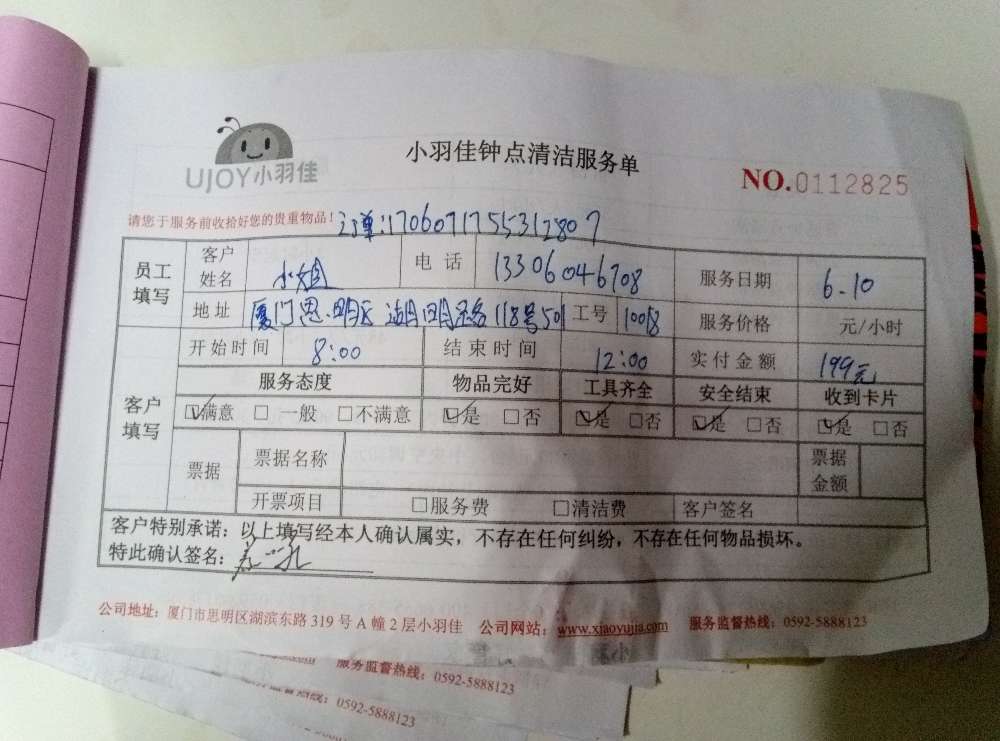 UJOY小羽佳
小羽佳钟点清洁服务单
NO.0112825
请您于服务前收拾好您的贵重物品！ 订单:1706071755312807
员工填写 客户姓名 小姐 电话 13306046708 服务日期 6.10
地址 厦门思明区湖明路118号501 工号 10018 服务价格 元/小时
客户填写 开始时间 8:00 结束时间 12:00 实付金额 199元
服务态度 物品完好 工具齐全 安全结束 收到卡片
☑满意 □一般 □不满意 ☑是 □否 ☑是 □否 ☑是 □否 ☑是 □否
票据 票据名称 票据金额
开票项目 □服务费 □清洁费 客户签名
客户特别承诺：以上填写经本人确认属实，不存在任何纠纷，不存在任何物品损坏。
特此确认签名：
公司地址：厦门市思明区湖滨东路 319 号 A 幢 2 层小羽佳 公司网站：www.xiaoyujia.com 服务监督热线：0592-5888123
服务监督热线：0592-5888123
服务监督热线：0592-5888123